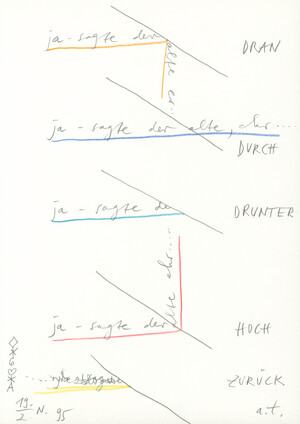 ja - sagte der alte, er... DRAN
ja - sagte der alte, chr.... DURCH
ja - sagte de DRUNTER
ja - sagte der alte chr.... HOCH
ZURÜCK
19. 2 N. 95 a.t.